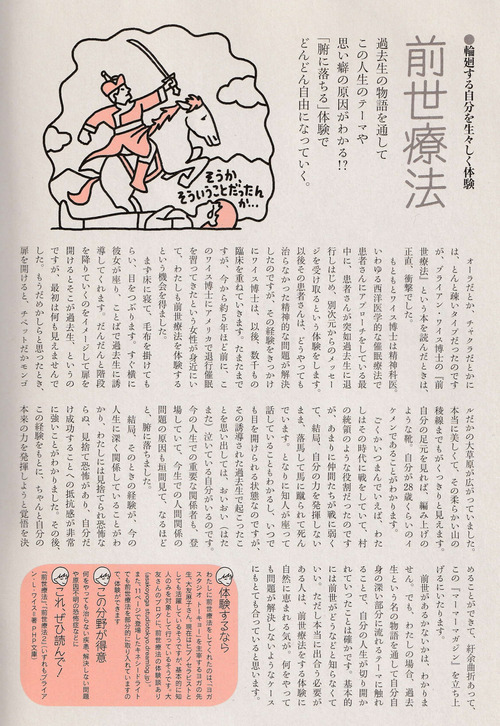 ●輪廻する自分を生々しく体験
前世療法
過去生の物語を通して
この人生のテーマや
思い癖の原因がわかる!?
「腑に落ちる」体験で
どんどん自由になっていく。
そうか、
そういうことだったん
か…
オーラだとか、チャクラだとかに
は、とんと疎いタイプだったのです
が、ブライアン・ワイス博士の『前
世療法』という本を読んだときは、
正直、衝撃でした。
もともとワイス博士は精神科医、
いわゆる西洋医学的な催眠療法で
患者さんにアプローチをしている最
中に、患者さんが突如過去生に退
行しはじめ、別次元からのメッセー
ジを受け取るという体験をします。
以後その患者さんは、どうやっても
治らなかった精神的な問題が解決
したのですが、その経験をきっかけ
にワイス博士は、以後、数千もの
臨床を重ねていきます。たまたまで
すが、今から約5年ほど前に、こ
のワイス博士にアメリカで退行催眠
を習ってきたという女性が身近にい
て、わたしも前世療法を体験する
という機会を得ました。
まず床に寝て、毛布を掛けても
らい、目をつぶります。すぐ横に
彼女が座り、ことばで過去生に誘
導してくれます。だんだんと階段
を降りていくのをイメージして扉を
開けるとそこが過去生、というの
ですが、最初は何も見えませんで
した。もうだめかしらと思ったとき、
扉を開けると、チベットだかモンゴ
ルだかの大草原が広がっていました。
本当に美しくて、その柔らかい山の
稜線までもがくっきりと見えます。
自分の足元を見れば、編み上げの
ような靴。自分が28歳くらいのイ
ケメンであることがわかります。
ごくかいつまんでいえば、わた
しはその時代に戦をしていて、村
の統領のような役割だったのです
が、あまりに仲間たちが戦に弱く
て、結局、自分の力を発揮しない
まま、落馬して馬に蹴られて死ん
でいます。となりに知人が座って
話していることもわかるし、いつで
も目を開けられる状態なのですが、
その誘導された過去生で起こったこ
とを思い出しては、おいおい(はた
また)泣いている自分がいるのです。
今の人生での重要な関係者も、登
場していて、今生での人間関係の
問題の原因も垣間見て、なるほど
と、腑に落ちました。
結局、そのときの経験が、今の
人生に深く関係していることがわ
かり、わたしには見捨てられ恐怖な
らぬ、見捨て恐怖があり、自分だ
け成功することへの抵抗感が非常
に強いことがわかりました。その後、
この経験をもとに、ちゃんと自分の
本来の力を発揮しようと覚悟を決
めることができて、紆余曲折あって、
この『マーマーマガジン』を立ち上
げるにいたります。
前世があるかないかは、わかりま
せん。でも、わたしの場合、過去
生という名の物語を通して自分自
身の深い部分に流れるテーマに触れ
ることで、自分の人生が切り開か
れていったことは確かです。基本的
には前世がどうなどと知らなくて
いい。ただし本当に出合う必要が
ある人は、前世療法をするように
自然に恵まれる気が。何をやって
も問題が解決しないようなケース
にもとても合っていると思います。
体験するなら
わたしに前世療法をほどこしたのは、「ヨガ
スタジオ・トーキョー」を主宰するヨガの先
生、大友麻子さん。現在はヒプノセラピストと
しても活躍しているそうですが、基本的に知
人のみを対象に行っているそうです。大
友さんのブログに、前世療法の体験談あり
ま
た、11ページで登場したキネシドライト
でも前世療法を部分的に取り入れていますの
で、体験ができます
この分野が得意
何をやっても治らない疾患、解決しない問題
や原因不明の恐怖症などに
これ、ぜひ読んで!
『前世療法』、『前世療法2』(いずれもブライア
ン・L・ワイス=著 PHP文庫)